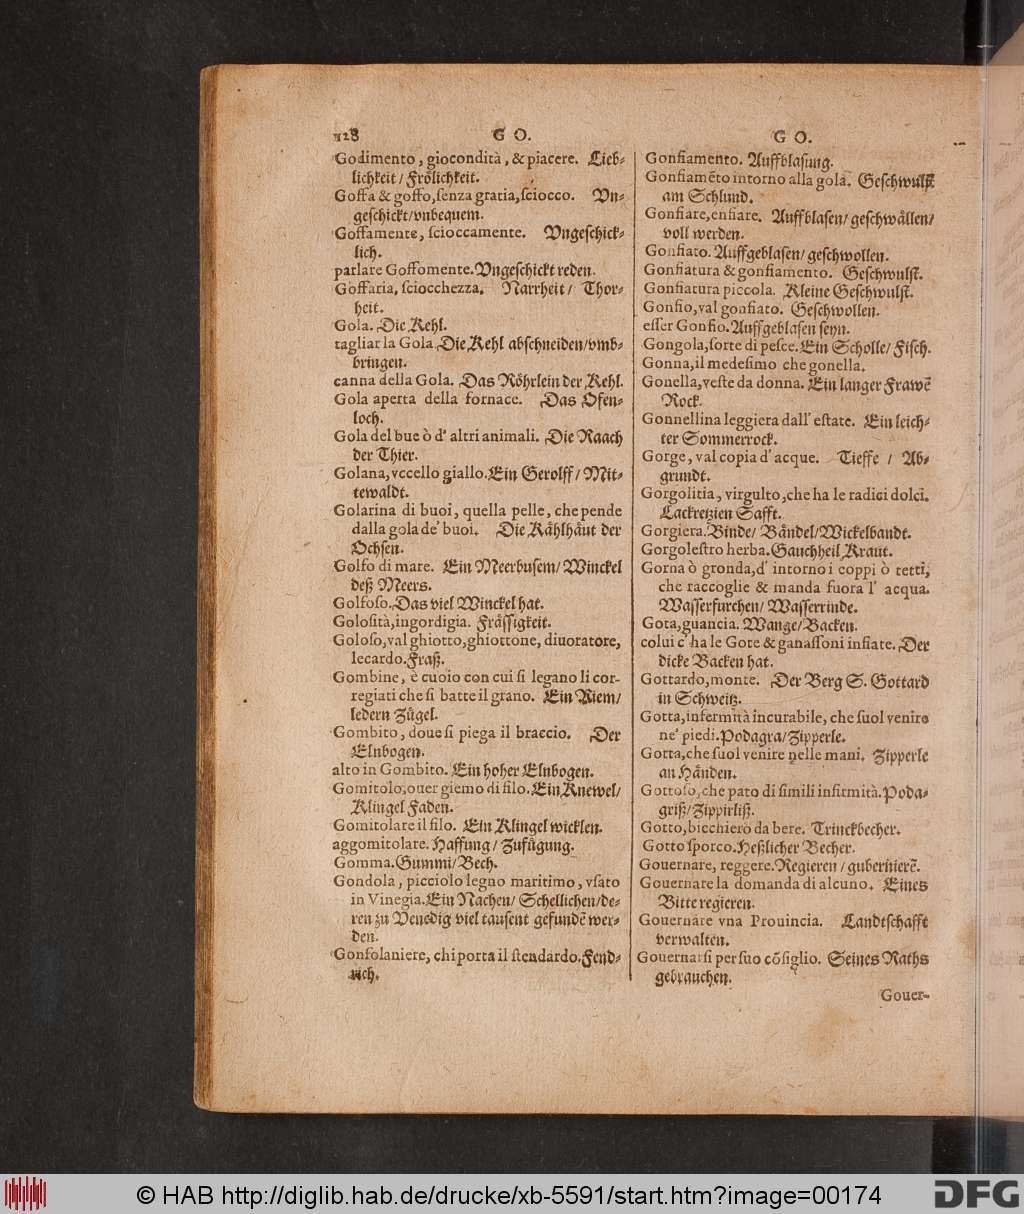 128 G O. G O.
Godimento, giocondità, & piacere. Lieb-
lichkeit / Frölichkeit.
Goffa & goffo, senza gratia, sciocco. Vn-
geschickt/vnbequem.
Goffamente, scioccamente. Vngeschick-
lich.
parlare Goffomente. Vngeschickt reden.
Goffaria, sciocchezza. Narrheit / Thor-
heit.
Gola. Die Kehl.
tagliar la Gola. Die Kehl abschneiden/vmb-
bringen.
canna della Gola. Das Röhrlein der Kehl.
Gola aperta della fornace. Das Ofen-
loch.
Gola del bue ò d' altri animali. Die Raach
der Thier.
Golana, vccello giallo. Ein Gerolff / Mit-
tewaldt.
Golarina di buoi, quella pelle, che pende
dalla gola de' buoi. Die Kählhäut der
Ochsen.
Golfo di mare. Ein Meerbusem/ Winckel
deß Meers.
Golfoso. Das viel Winckel hat.
Golosità, ingordigia. Frässigkeit.
Goloso, val ghiotto, ghiottone, diuoratore,
lecardo. Fraß.
Gombine, è cuoio con cui si legano li cor-
regiati che si batte il grano. Ein Riem/
ledern Zügel.
Gombito, doue si piega il braccio. Der
Elnbogen.
alto in Gombito. Ein hoher Elnbogen.
Gomitolo, ouer giemo di filo. Ein Knewel/
Klingel Faden.
Gomitolare il filo. Ein Klingel wicklen.
aggomitolare. Haffung / Zufügung.
Gomma. Gummi/ Bech.
Gondola, picciolo legno maritimo, vsato
in Vinegia. Ein Nachen/ Schellichen/de-
ren zu Venedig viel tausent gefundē wer-
den.
Gonfolaniere, chi porta il stendardo. Fend-
rich.
Gonfiamento. Auffblasung.
Gonfiamēto intorno alla gola. Geschwulst
am Schlund.
Gonfiare, enfiare. Auffblasen/ geschwällen/
voll werden.
Gonfiato. Auffgeblasen/ geschwollen.
Gonfiatura & gonfiamento. Geschwulst.
Gonfiatura piccola. Kleine Geschwulst.
Gonfio, val gonfiato. Geschwollen.
esser Gonfio. Auffgeblasen seyn.
Gongola, sorte di pesce. Ein Scholle/ Fisch.
Gonna, il medesimo che gonella.
Gonella, veste da donna. Ein langer Frawē
Rock.
Gonnellina leggiera dall' estate. Ein leich-
ter Sommerrock.
Gorge, val copia d' acque. Tieffe / Ab-
grundt.
Gorgolitia, virgulto, che ha le radici dolci.
Lackretzien Safft.
Gorgiera. Binde/ Bändel/Wickelbandt.
Gorgolestro herba. Gauchheil Kraut.
Gorna ò gronda, d' intorno i coppi ò tetti,
che raccoglie & manda fuora l' acqua.
Wasserfurchen/ Wasserrinde.
Gota, guancia. Wange/ Backen.
colui c' ha le Gote & ganassoni infiate. Der
dicke Backen hat.
Gottardo, monte. Der Berg S. Gottard
in Schweitz.
Gotta, infermità incurabile, che suol venire
ne' piedi. Podagra/ Zipperle.
Gotta, che suol venire nelle mani. Zipperle
an Händen.
Gottoso, che pato di simili infirmità. Poda-
griß/ Zippirlist.
Gotto, bicchiero da bere. Trinckbecher.
Gotto sporco. Heßlicher Becher.
Gouernare, reggere. Regieren / gubernierē.
Gouernare la domanda di alcuno. Eines
Bitte regieren.
Gouernare vna Prouincia. Landtschafft
verwalten.
Gouernarsi per suo cōsiglio. Seines Raths
gebrauchen.
Gouer-
© HAB http://diglib.hab.de/drucke/xb-5591/start.htm?image=00174
DFG